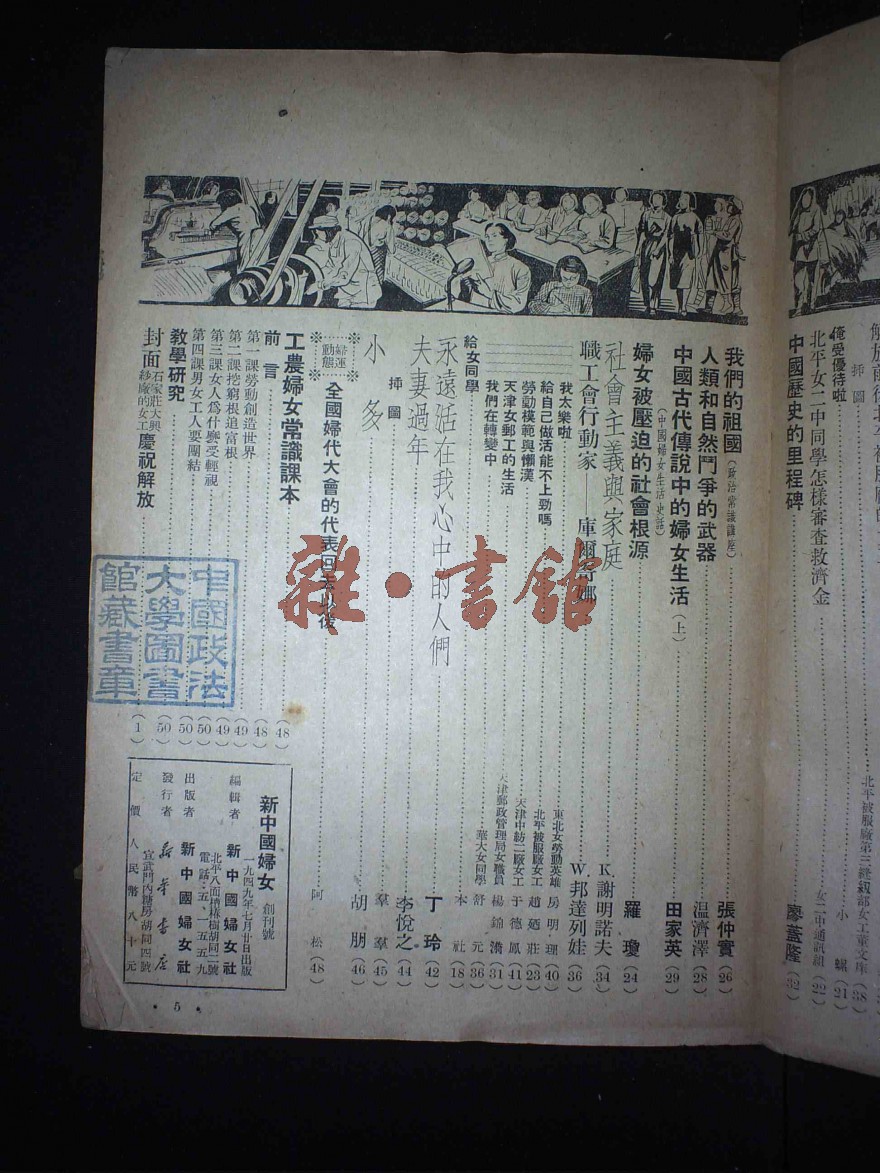 中國歷史的里程碑……廖蓋隆（32）
北平女二中同學怎樣審查救濟金……女二中通訊組（22）
俺受優待啦……小螺（21）
插圖
北平被服廠第三經級部女工童文庠（38）
我們的祖國（政治常識講座）……張仲實（26）
人類和自然鬥爭的武器……温濟澤（28）
中國古代傳說中的婦女生活（上）……田家英（29）
（中國婦女生活史話）
婦女被壓迫的社會根源……羅瓊（24）
社會主義與家庭……K.謝明諾夫（34）
職工會行動家——庫爾奇娜……W.邦達列娃（36）
我太樂啦……東北女勞動英雄 房明理（40）
給自己做活能不上勁嗎……北平被服廠女工 趙廼莊（23）
勞動模範與懶漢……天津中紡二廠女工 于德鳳（41）
天津女郵工的生活……天津郵政管理局女職員 楊錦濟（31）
我們在轉變中……華大女同學 舒元（36）
給女同學……本社（18）
永遠活在我心中的人們……丁玲（42）
夫妻過年……李悅之（44）
插圖……羣羣（45）
小多……胡朋（46）
婦運動態
全國婦代大會的代表回去以後……阿松（48）
工農婦女常識課本……（48）
前言……（48）
第一課勞動創造世界……（49）
第二課挖窮根追富根……（49）
第三課女人爲什麼受輕視……（50）
第四課男女工人要團結……（50）
教學研究……（50）
封面 石家莊大興紗廠的女工慶祝解放……（1）
新中國婦女 創刊號
一九四九年七月廿日出版
編輯者 新中國婦女社
北平八面槽椿樹胡同一號
電話：五·一五五九
出版者 新中國婦女社
發行者 新華書店
宣武門內糖房胡同四號
定價 人民幣八十元
·5·
中國政法大學圖書館藏書章
雜·書館